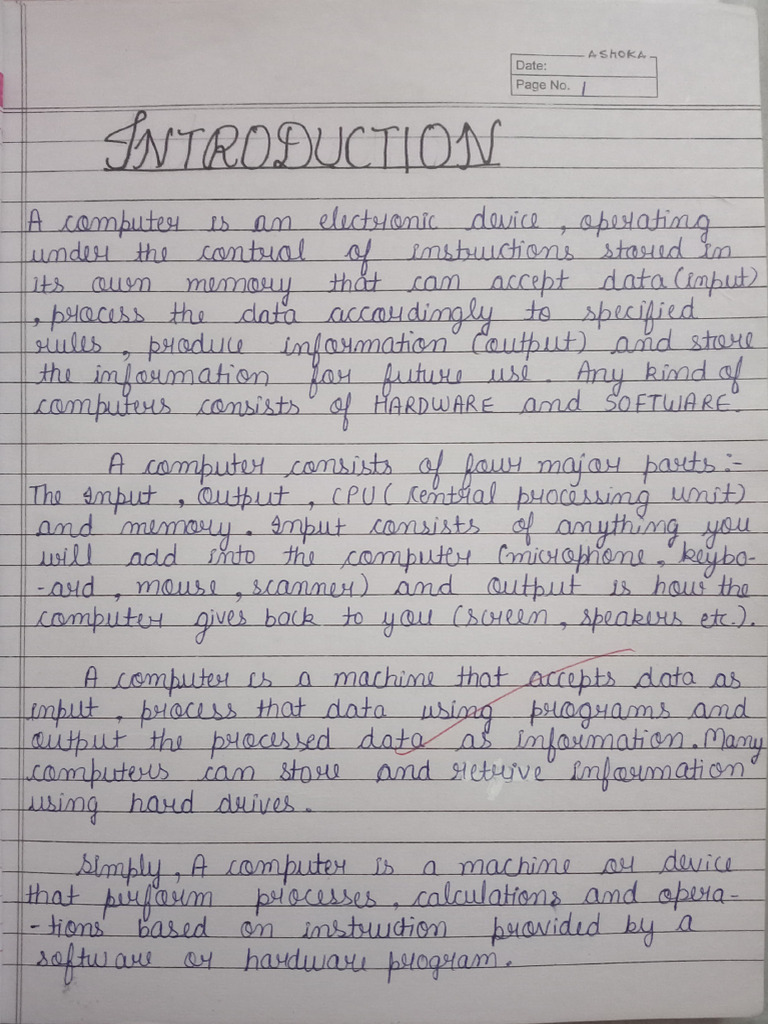 ASHOKA
Date:
Page No. 1
INTRODUCTION
A computer is an electronic device , operating
under the control of instructions stored in
its own memory that can accept data (input)
, process the data accordingly to specified
rules , produce information (output) and store
the information for future use. Any kind of
computers consists of HARDWARE and SOFTWARE.
A computer consists of four major parts :-
The Input , Output , CPU ( central processing unit)
and memory. Input consists of anything you
will add into the computer (microphone, keybo-
-ard , mouse , scanner) and output is how the
computer gives back to you (screen , speakers etc.).
A computer is a machine that accepts data as
input , process that data using programs and
output the processed data as information. Many
computers can store and retrive information
using hard drives.
Simply, A computer is a machine or device
that perform processes, calculations and opera-
-tions based on instruction provided by a
software or hardware program.